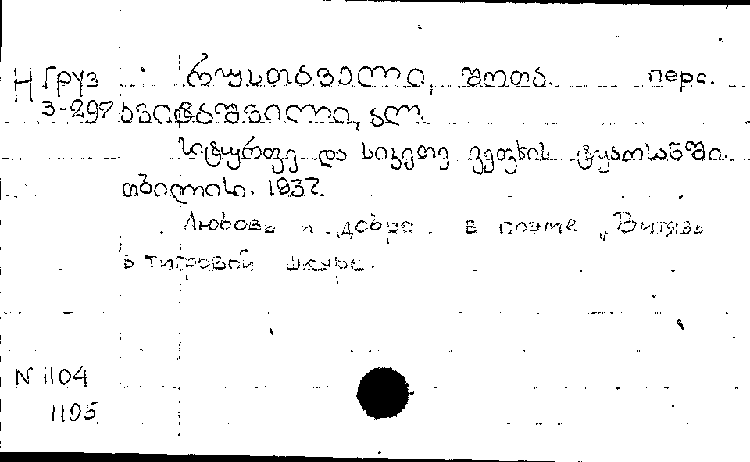 Н Груз რუსთაველი, შოთა перс.
3-297 ავიტაშვილი, ალ
სიყვარული და სიკეთე ვეფხის ტყაოსანში
თბილისი. 1937
Любовь и добро в поэме „Витязь
в тигровой шкуре.
N 1104
1105